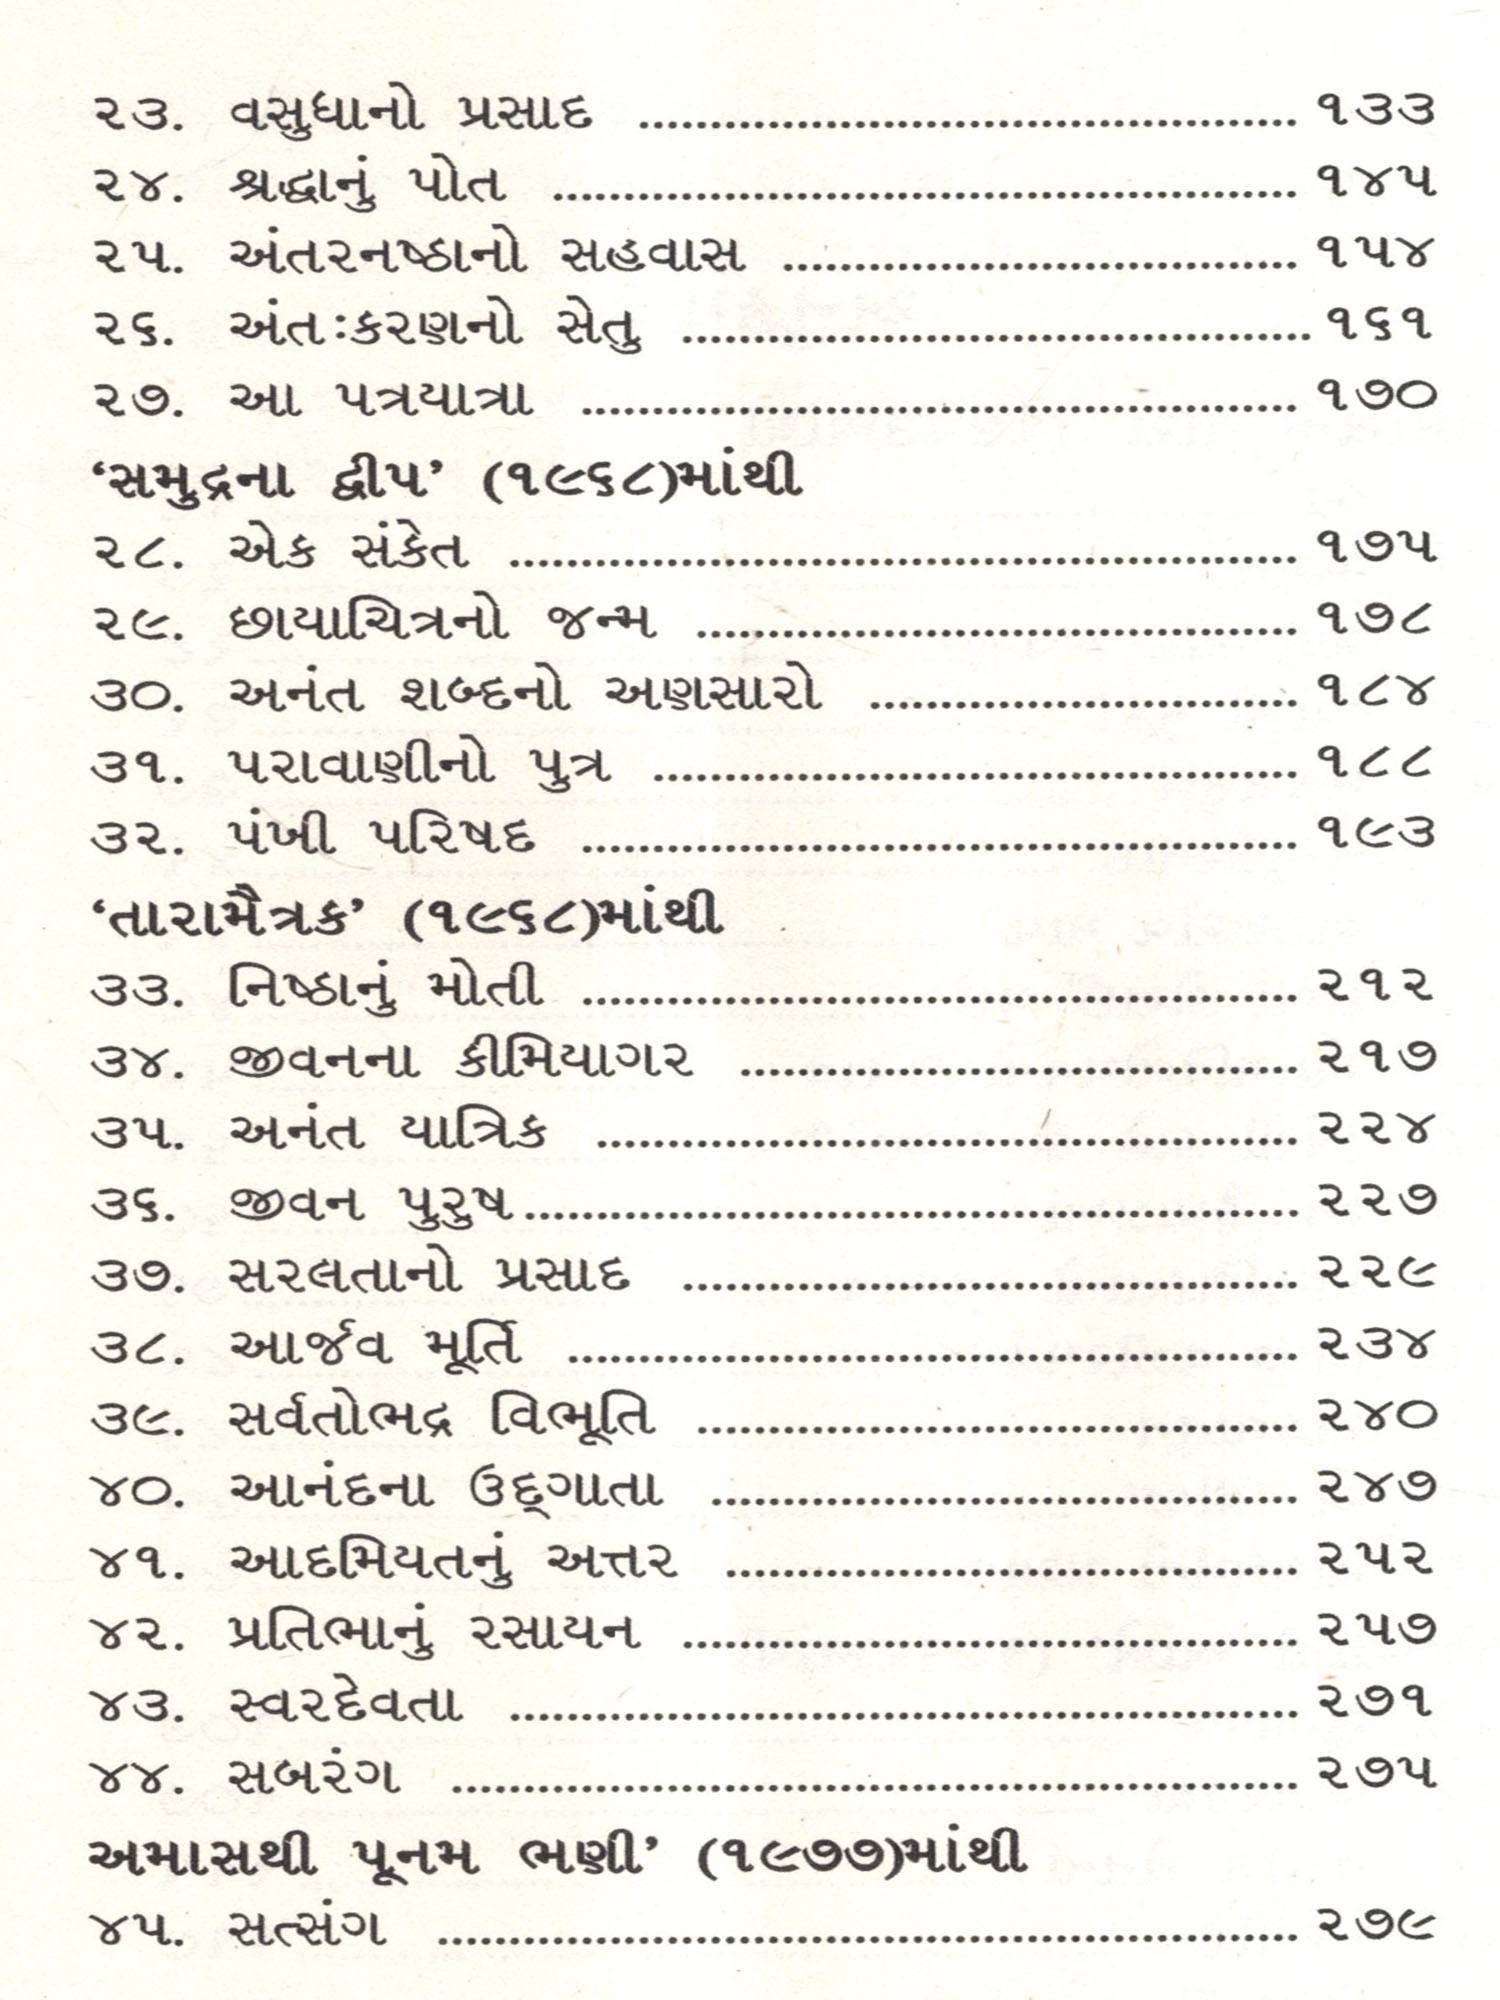 ૨૩. વસુધાનો પ્રસાદ .............................................. ૧૩૩
૨૪. શ્રદ્ધાનું પોત .................................................... ૧૪૫
૨૫. અંતરનષ્ઠાનો સહવાસ .................................... ૧૫૪
૨૬. અંતઃકરણનો સેતુ ............................................ ૧૬૧
૨૭. આ પત્રયાત્રા .................................................. ૧૭૦
‘સમુદ્રના દ્વીપ’ (૧૯૬૮)માંથી
૨૮. એક સંકેત ....................................................... ૧૭૫
૨૯. છાયાચિત્રનો જન્મ .......................................... ૧૭૮
૩૦. અનંત શબ્દનો અણસારો .............................. ૧૮૪
૩૧. પરાવાણીનો પુત્ર ............................................. ૧૮૮
૩૨. પંખી પરિષદ .................................................. ૧૯૩
‘તારામૈત્રક’ (૧૯૬૮)માંથી
૩૩. નિષ્ઠાનું મોતી .................................................. ૨૧૨
૩૪. જીવનના કીમિયાગર ....................................... ૨૧૭
૩૫. અનંત યાત્રિક ................................................. ૨૨૪
૩૬. જીવન પુરુષ...................................................... ૨૨૭
૩૭. સરલતાનો પ્રસાદ ........................................... ૨૨૯
૩૮. આર્જવ મૂર્તિ ................................................... ૨૩૪
૩૯. સર્વતોભદ્ર વિભૂતિ .......................................... ૨૪૦
૪૦. આનંદના ઉદ્‌ગાતા ......................................... ૨૪૭
૪૧. આદમિયતનું અત્તર ........................................ ૨૫૨
૪૨. પ્રતિભાનું રસાયન ........................................... ૨૫૭
૪૩. સ્વરદેવતા ....................................................... ૨૭૧
૪૪. સબરંગ ........................................................... ૨૭૫
અમાસથી પૂનમ ભણી’ (૧૯૭૭)માંથી
૪૫. સત્સંગ ............................................................ ૨૭૯